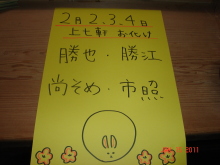 2月2.3.4日
上七軒 お化け
勝也・勝江
尚そめ・市照
2011